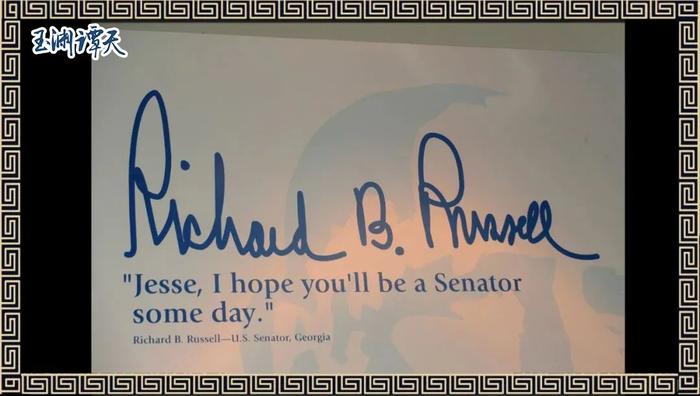 玉渊谭天
Richard B. Russell
"Jesse, I hope you'll be a Senator
some day."
Richard B. Russell—U.S. Senator, Georgia